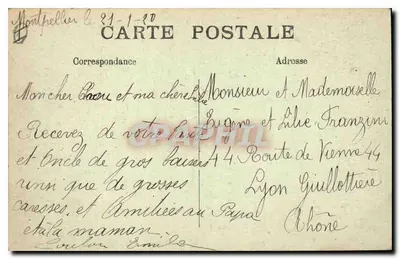 Montpellier le 21-1-20
CARTE POSTALE
Correspondance
Adresse
Mon cher et ma chère
Recevez de votre
et Oncle de gros baisers
unsi que de grosses
caresses. et Amitiées au Papa
et à la maman
Emile
Monsieur et Mademoiselle
Eugène et Lilie Franzini
44 Route de Vienne 44
Lyon Guillottière
Rhône